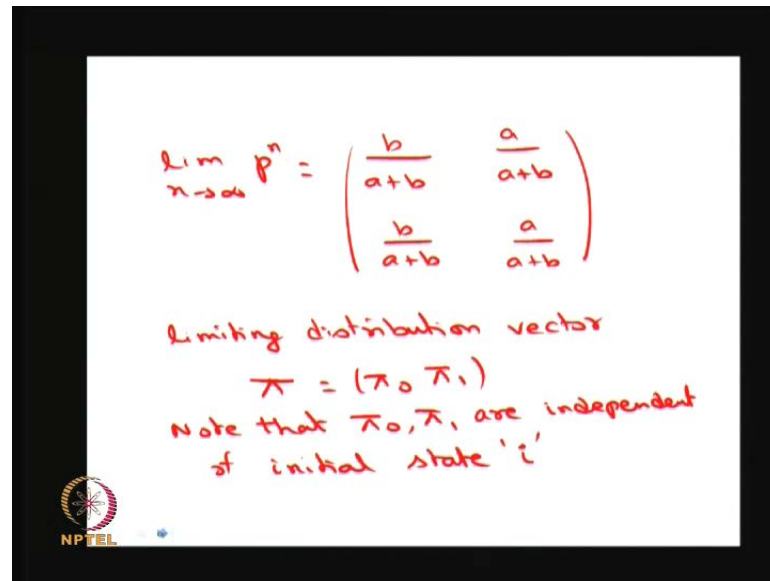 lim P^n = ( b/(a+b) a/(a+b)
n→∞
b/(a+b) a/(a+b) )
limiting distribution vector
π = (π₀ π₁)
Note that π₀, π₁ are independent
of initial state 'i'
NPTEL